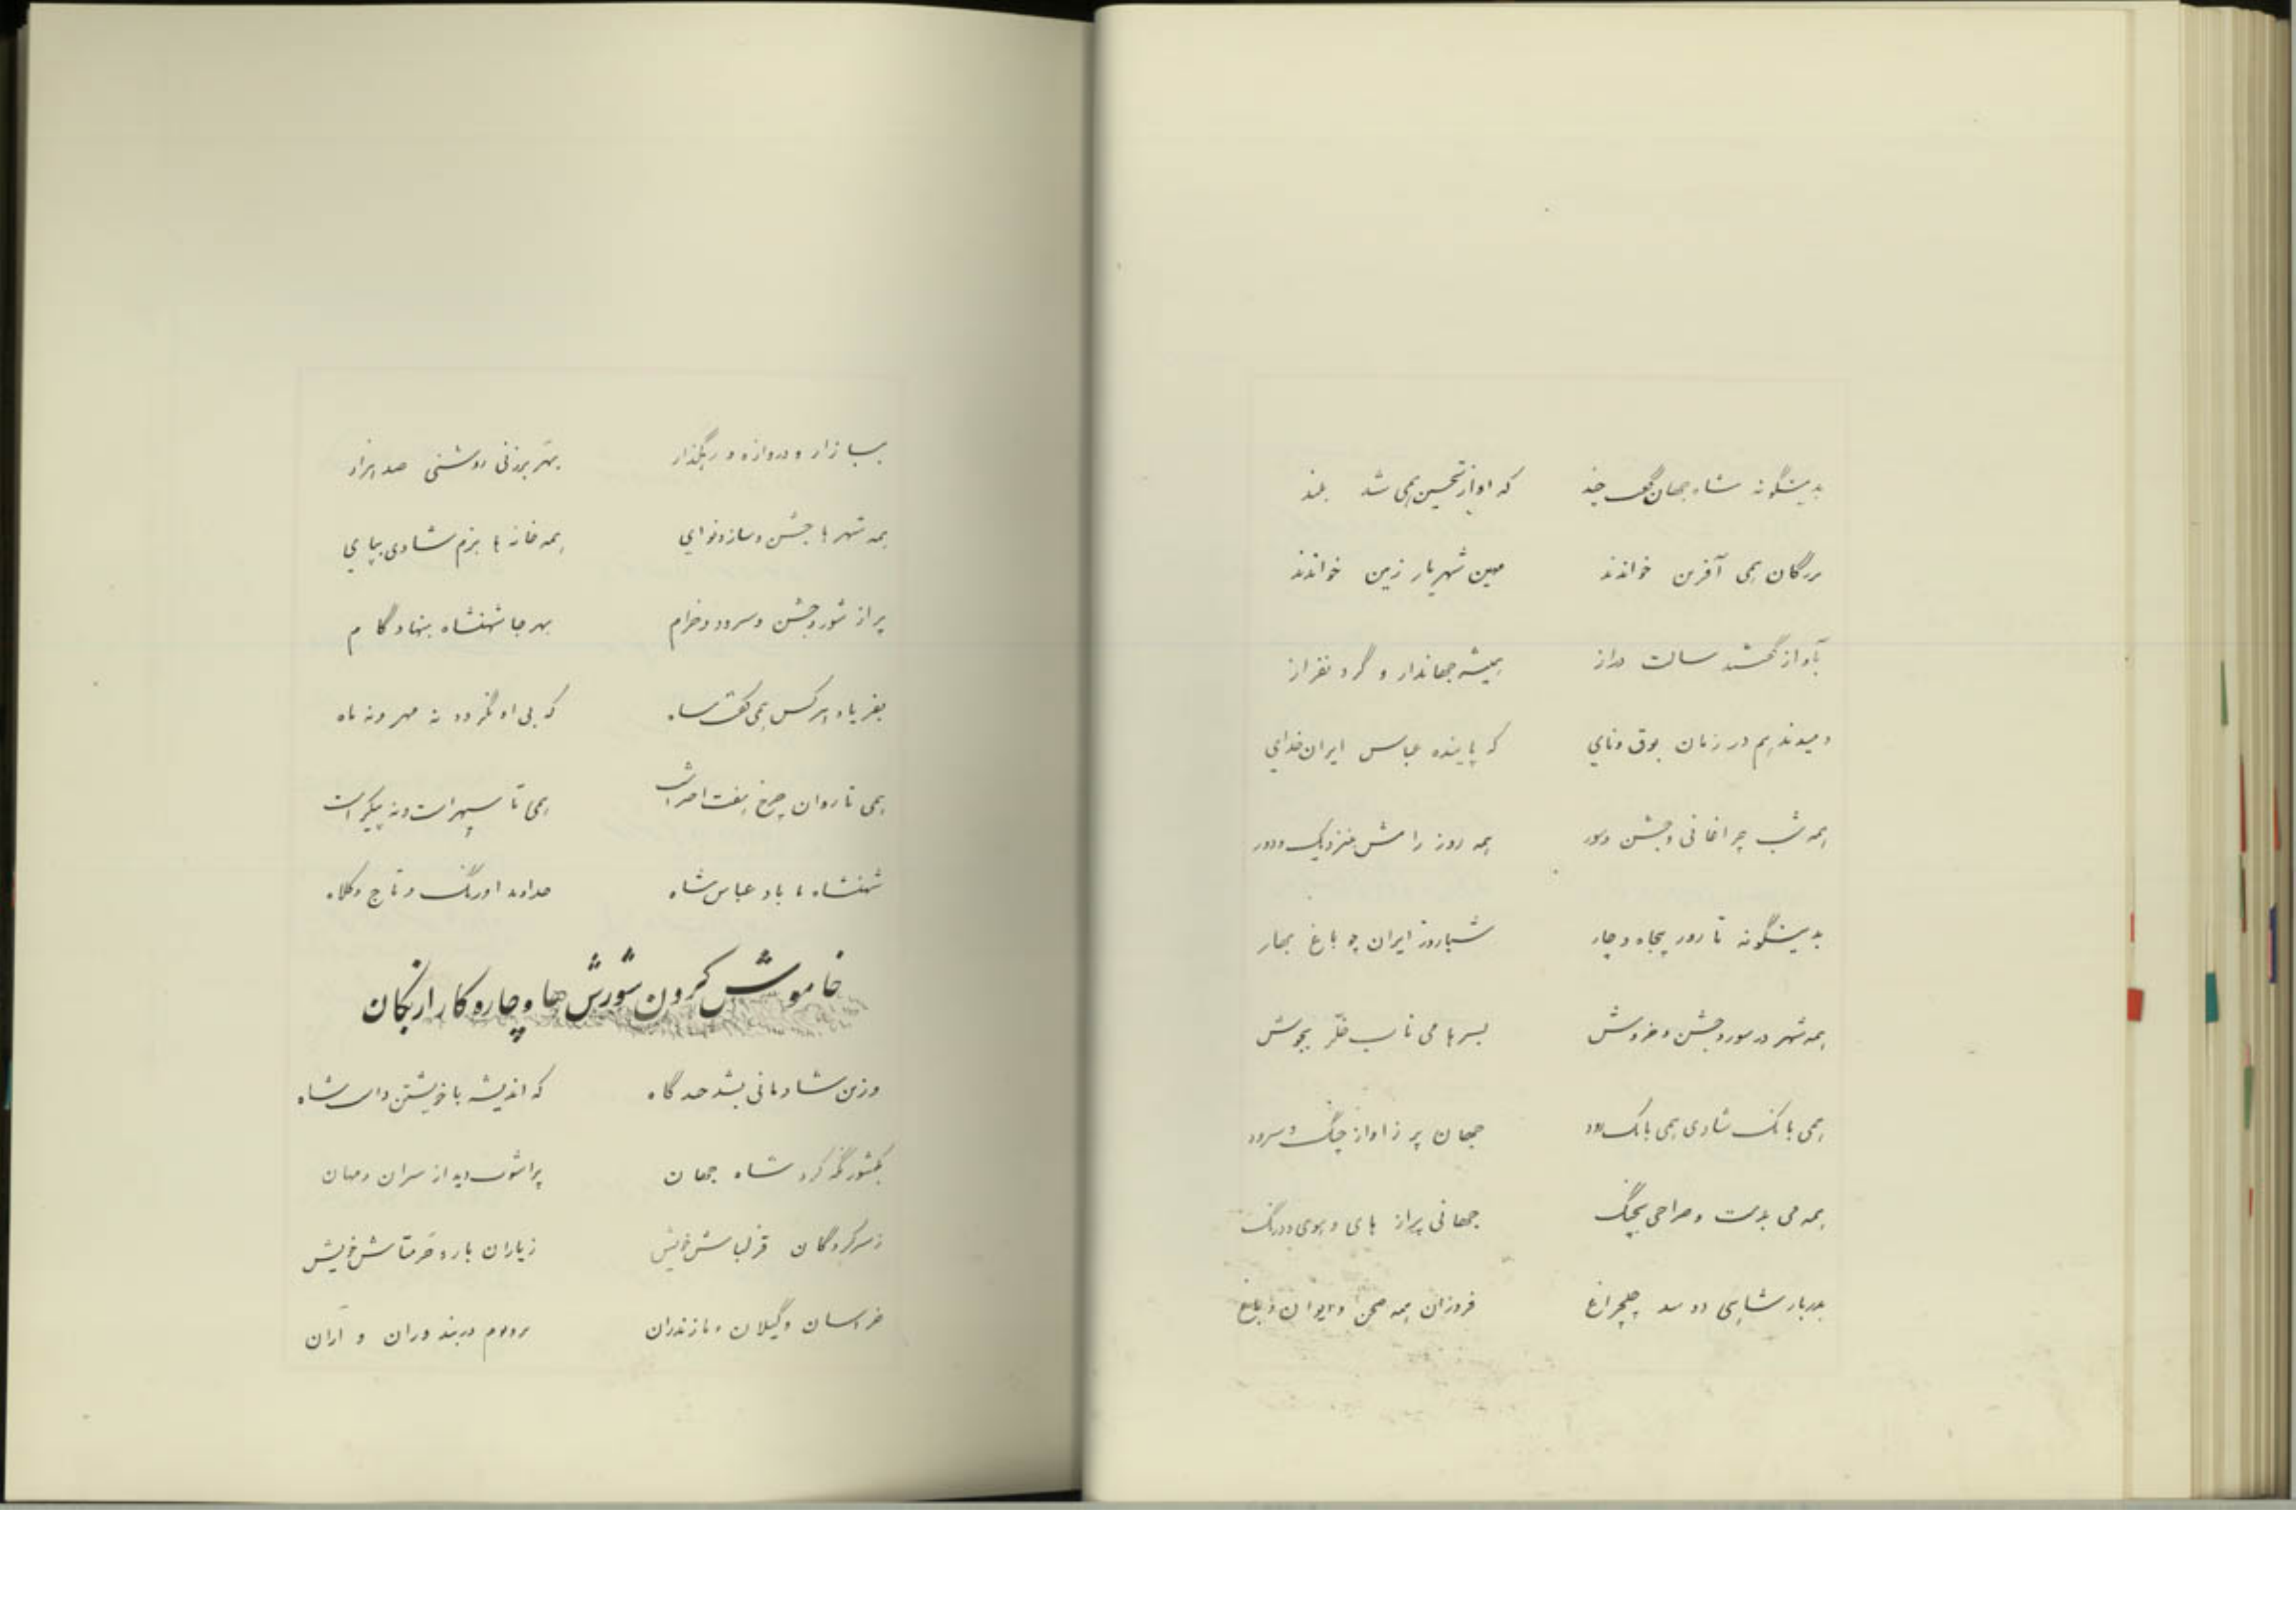 بدینگونه شاه جهان گفت چند که آواز تحسین همی شد بلند
بزرگان همی آفرین خواندند مهین شهریار زمین خواندند
بآواز گفتند سالت دراز همیشه جهاندار و گردنفراز
دمیدند هم در زمان بوق و نای که پاینده عباس ایران خدای
همه شب چراغانی و جشن و سور همه روز رامش بنزدیک و دور
بدینگونه تا روز پنجاه و چار شباروز ایران چو باغ بهار
همه شهر در سور و جشن و خروش بسرها می ناب خلّر بجوش
همی بانگ شادی همی بانگ رود جهان پر ز آواز چنگ و سرود
همه می بدست و صراحی بچنگ جهانی پر از های و هوی و درنگ
بدربار شاهی دو سد چلچراغ فروزان همه صحن و ایوان و باغ
ببازار و دروازه و رهگذار بهر برزنی روشنی صد هزار
همه شهرها جشن و ساز و نوای همه خانه‌ها بزم شادی بپای
پر از شور و جشن و سرود و خرام بهر جا شهنشاه بنهاد گام
بفریاد هر کس همی گفت شاه که بی او نگردد نه مهر و نه ماه
همی تا روان چرخ هفت اختر است همی تا سپهر است و نه پیکر است
شهنشاه ما باد عباس شاه خداوند اورنگ و تاج و کلاه
خاموش کردن شورش‌ها و چاره کار ازبکان
وزین شادمانی بشد چندگاه که اندیشه با خویشتن داشت شاه
بکشور نگه کرد شاه جهان پرآشوب دید از سران و مهان
ز سرکردگان قزلباش خویش ز یاران یار و خرمتاش خویش
خراسان و گیلان و مازندران بر و بوم دربند و ران و آران